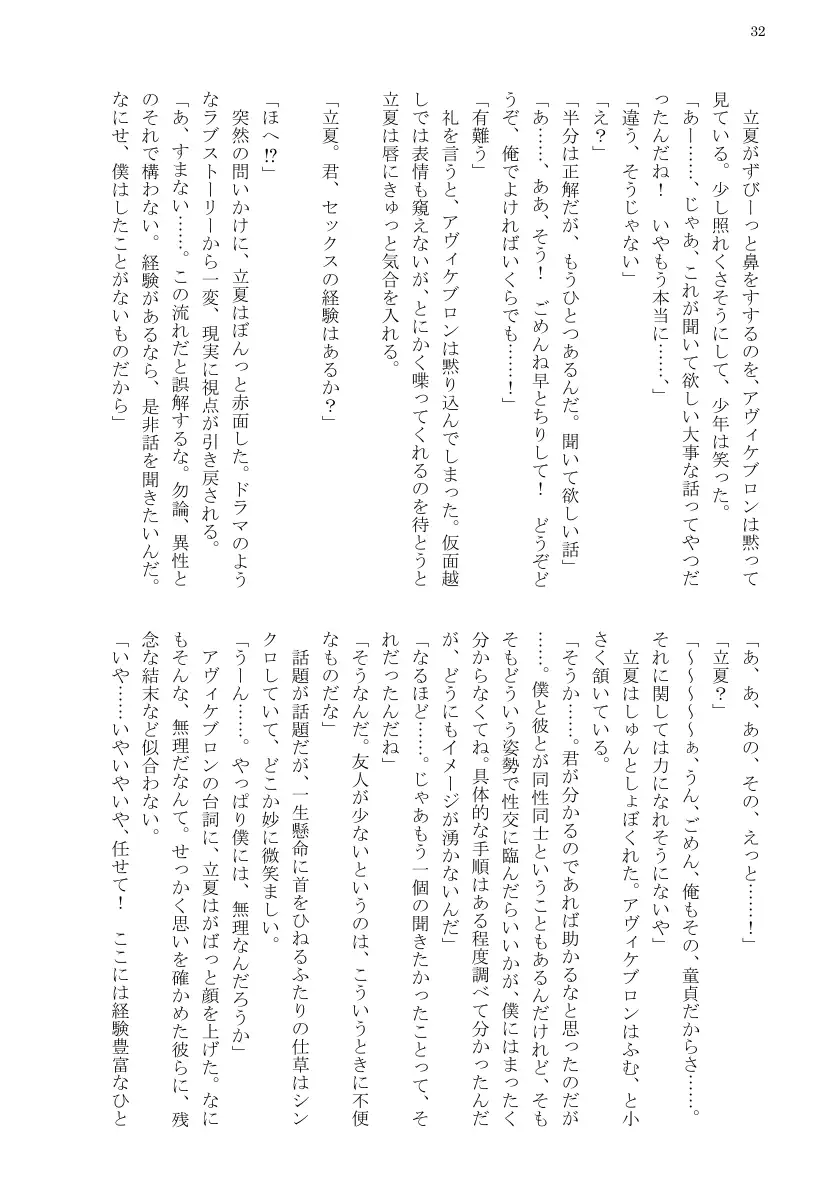 32
　立夏がずびーっと鼻をすするのを、アヴィケブロンは黙って
見ている。少し照れくさそうにして、少年は笑った。
「あー……、じゃあ、これが聞いて欲しい大事な話ってやつだ
ったんだね！　いやもう本当に……、」
「違う、そうじゃない」
「え？」
「半分は正解だが、もうひとつあるんだ。聞いて欲しい話」
「あ……、ああ、そう！　ごめんね早とちりして！　どうぞど
うぞ、俺でよければいくらでも……！」
「有難う」
　礼を言うと、アヴィケブロンは黙り込んでしまった。仮面越
しでは表情も窺えないが、とにかく喋ってくれるのを待とうと
立夏は唇にきゅっと気合を入れる。
「立夏。君、セックスの経験はあるか？」
「ほへ⁉」
　突然の問いかけに、立夏はぼんっと赤面した。ドラマのよう
なラブストーリーから一変、現実に視点が引き戻される。
「あ、すまない……。この流れだと誤解するな。勿論、異性と
のそれで構わない。経験があるなら、是非話を聞きたいんだ。
なにせ、僕はしたことがないものだから」
「あ、あ、あの、その、えっと……！」
「立夏？」
「～～～～～ぁ、うん、ごめん、俺もその、童貞だからさ……。
それに関しては力になれそうにないや」
　立夏はしゅんとしょぼくれた。アヴィケブロンはふむ、と小
さく頷いている。
「そうか……。君が分かるのであれば助かるなと思ったのだが
……。僕と彼とが同性同士ということもあるんだけれど、そも
そもどういう姿勢で性交に臨んだらいいかが、僕にはまったく
分からなくてね。具体的な手順はある程度調べて分かったんだ
が、どうにもイメージが湧かないんだ」
「なるほど……。じゃあもう一個の聞きたかったことって、そ
れだったんだね」
「そうなんだ。友人が少ないというのは、こういうときに不便
なものだな」
　話題が話題だが、一生懸命に首をひねるふたりの仕草はシン
クロしていて、どこか妙に微笑ましい。
「うーん……。やっぱり僕には、無理なんだろうか」
　アヴィケブロンの台詞に、立夏はがばっと顔を上げた。なに
もそんな、無理だなんて。せっかく思いを確かめた彼らに、残
念な結末など似合わない。
「いや……いやいやいや、任せて！　ここには経験豊富なひと